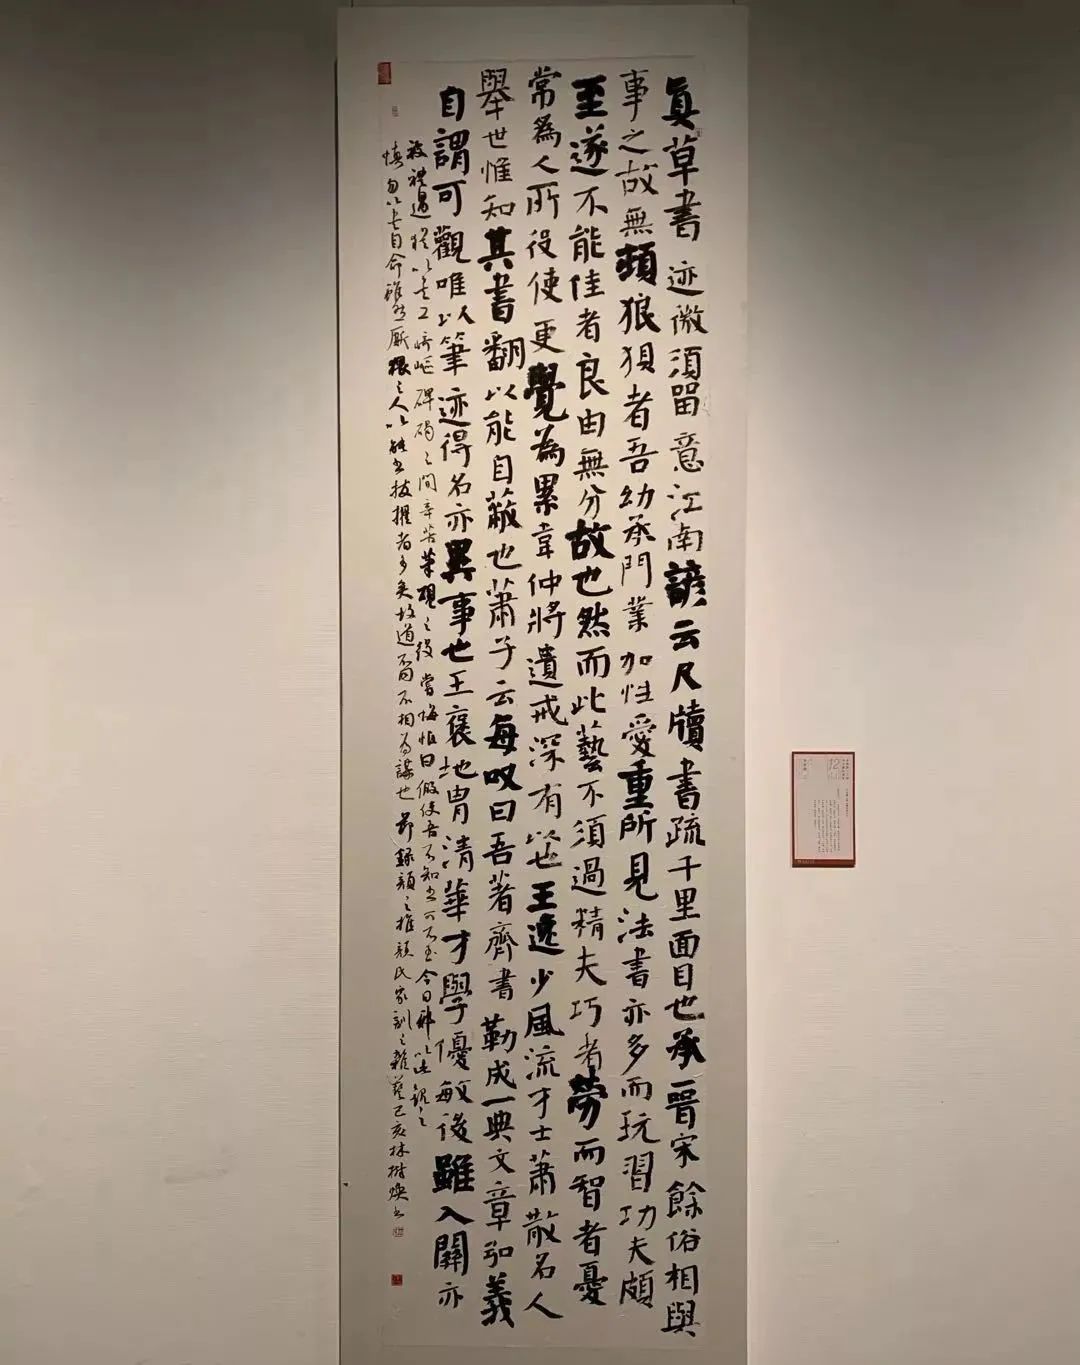 真草書迹微須留意江南諺云尺牘書疏千里面目也承晉宋餘俗相與
事之故無頓狼狽者吾幼承門業加性愛重所見法書亦多而玩習功夫頗
至遂不能佳者良由無分故也然而此藝不須過精夫巧者勞而智者憂
常為人所役使更覺為累韋仲將遺戒深有以也王逸少風流才士蕭散名人
舉世惟知其書翻以能自蔽也蕭子云每叹曰吾著齊書勒成一典文章弘義
自謂可觀唯以筆迹得名亦異事也王褒地胄清華才學優敏後雖入關亦
被禮遇猶以書工崎嶇碑碣之間辛苦筆硯之役嘗悔恨曰假使吾不知書可不至今日邪以此觀之
慎勿以書自命雖然厮猥之人以能書拔擢者多矣故道不同不相為謀也節録顏之推顏氏家訓之雜藝己亥林樹煥書